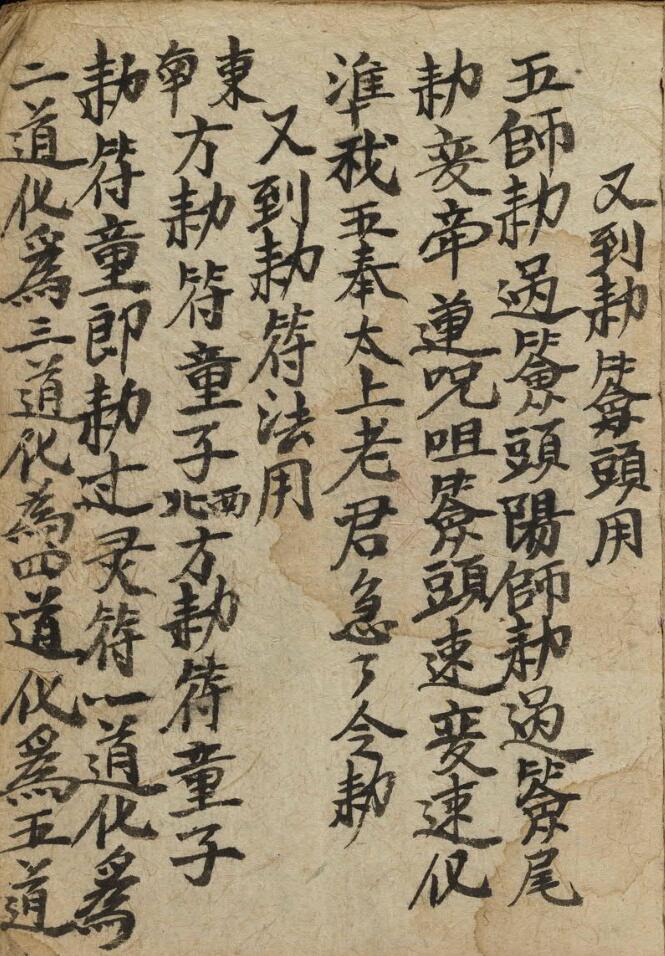 又到勅簽頭用
五師勅過簽頭陽師勅過簽尾
勅変帝蓮呪咀簽頭速変速化
準我五奉太上老君急了令勅
又到勅符法用
東南方勅符童子西北方勅符童子
勅符童郎勅过灵符一道化為
二道化為三道化為四道化為五道